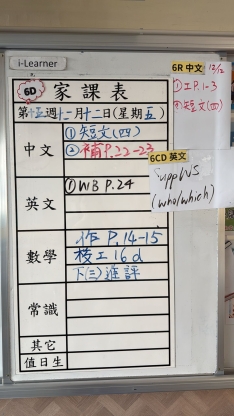 i-Learner
6D 家課表
第十五週十二月十二日(星期五)
中文
①短文(四)
②補P.22-23
英文
①WB P.24
數學
作 P.14-15
校工16d
下(三)進評
常識
其它
值日生
6R 中文 12/12
①工P.1-3
②短文(四)
6CD 英文
Supp WS
(who/which)